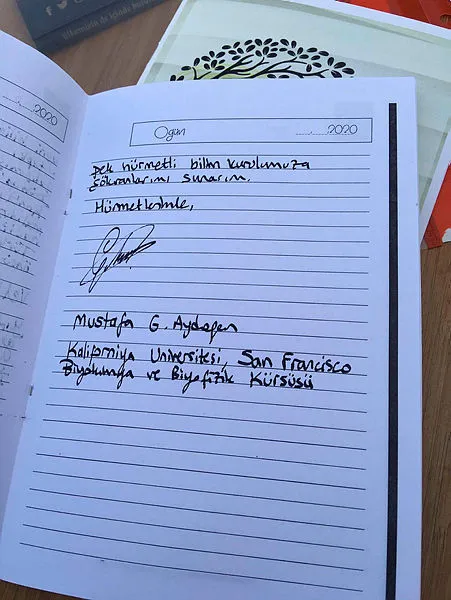 2020
Ogün 2020
pek hürmetli bilim kurulumuza
şükranlarımı sunarım.
Hürmetlerimle,
Mustafa G. Aydogan
Kaliforniya Üniversitesi, San Francisco
Biyokimya ve Biyofizik Kürsüsü